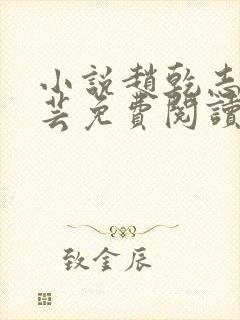 小説趙乾志
芸免費閱讀
致金辰